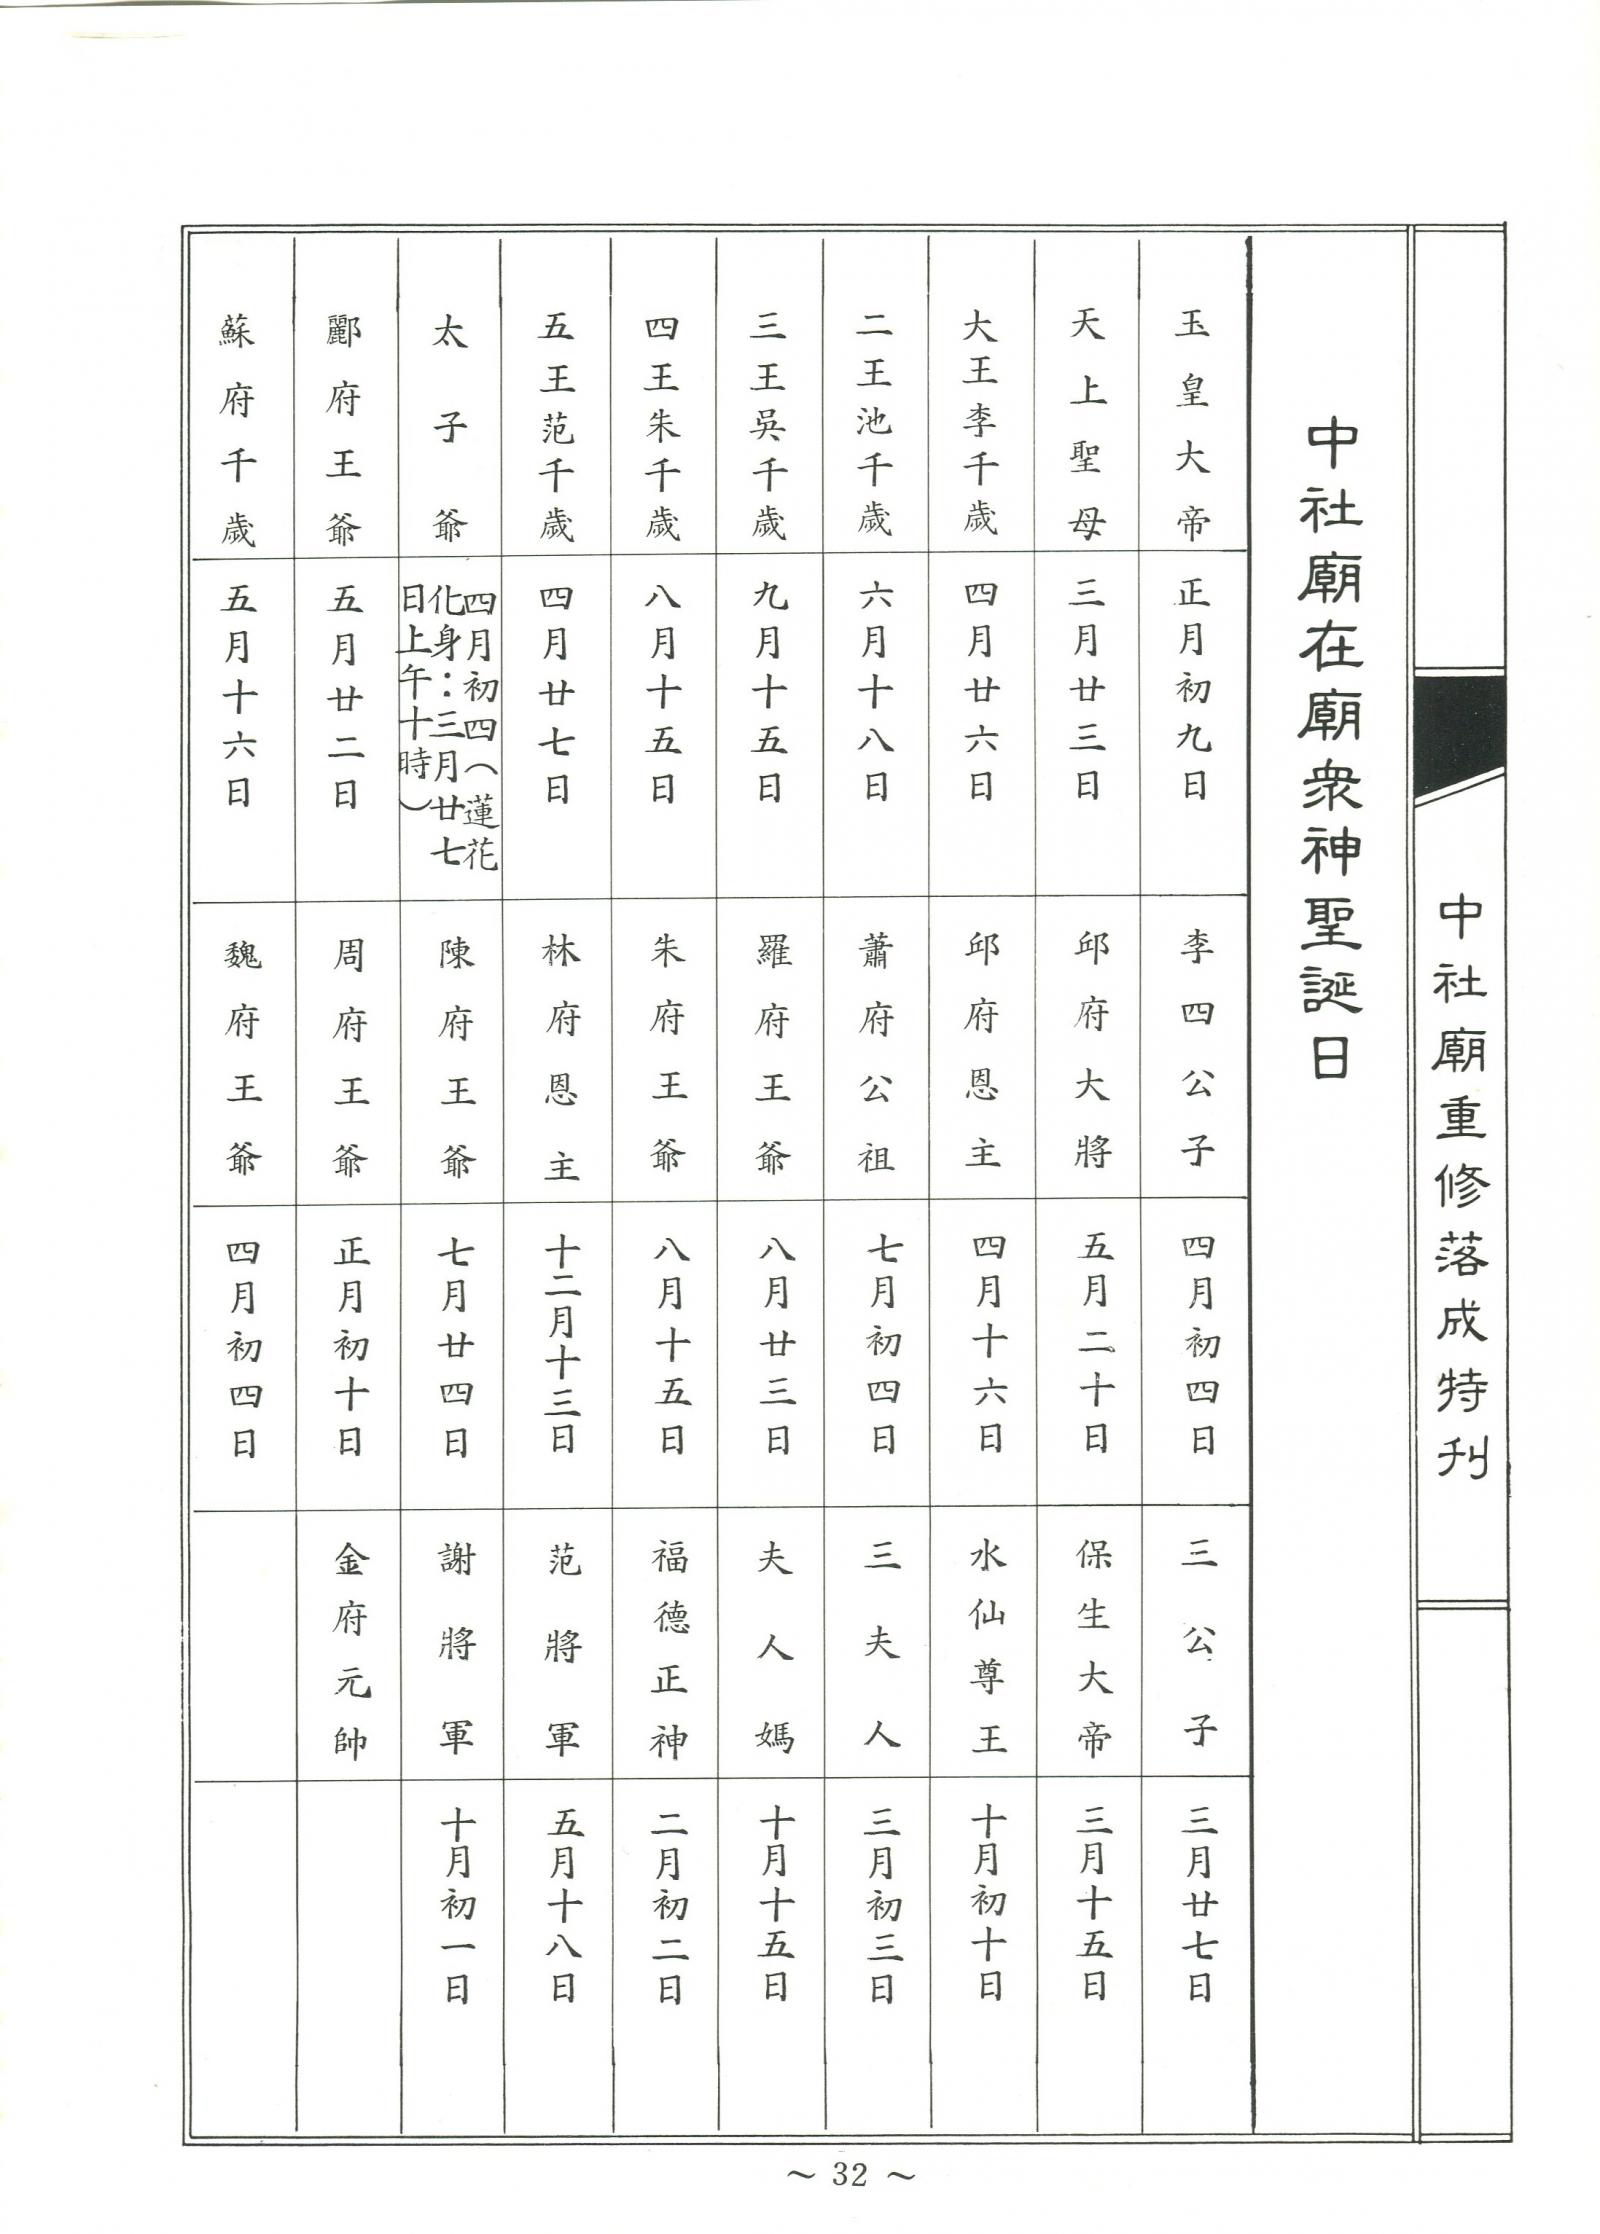 中社廟重修落成特刊
中社廟在廟眾神聖誕日
玉皇大帝
正月初九日
李四公子
四月初四日
三公子
三月廿七日
天上聖母
三月廿三日
邱府大將
五月二十日
保生大帝
三月十五日
大王李千歲
四月廿六日
邱府恩主
四月十六日
水仙尊王
十月初十日
二王池千歲
六月十八日
蕭府公祖
七月初四日
三夫人
三月初三日
三王吳千歲
九月十五日
羅府王爺
八月廿三日
夫人媽
十月十五日
四王朱千歲
八月十五日
朱府王爺
八月十五日
福德正神
二月初二日
五王范千歲
四月廿七日
林府恩主
十二月十三日
范將軍
五月十八日
太子爺
四月初四（蓮花
化身：三月廿七
日上午十時）
陳府王爺
七月廿四日
謝將軍
十月初一日
酈府王爺
五月廿二日
周府王爺
正月初十日
金府元帥
蘇府千歲
五月十六日
魏府王爺
四月初四日
～32～